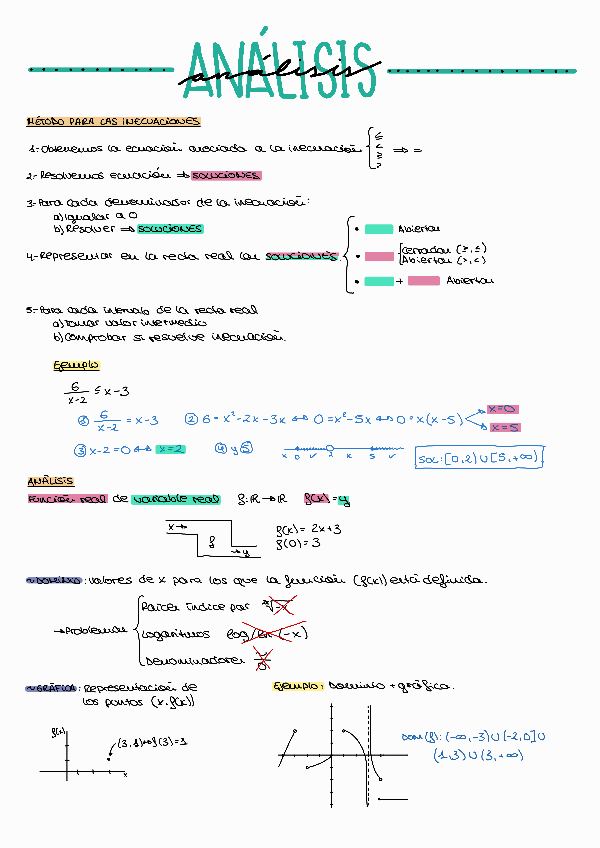 ANÁLISIS
análisis
MÉTODO PARA LAS INECUACIONES
1.-Obtenemos la ecuación asociada a la inecuación { ≤ < ≥ > ⇒ =
2.-Resolvemos ecuación ⇒ SOLUCIONES
3.-Para cada denominador de la inecuación:
a) Igualar a 0
b) Resolver ⇒ SOLUCIONES
• Abiertas
4.-Representar en la recta real las soluciones.
• [Cerradas (≥,≤)
Abiertas (>,<)
• + Abiertas
5.-Para cada intervalo de la recta real
a) Tomar valor intermedio
b) Comprobar si resuelve inecuación.
Ejemplo
6/x-2 ≤ x-3
① 6/x-2 = x-3 ② 6 = x²-2x-3x ↔ 0=x²-5x ↔ 0=x(x-5) x=0
x=5
③ x-2=0 ↔ x=2 ④ y ⑤ x 0 ✓ 2 x 5 ✓ SOL: [0,2) ∪ [5,+∞)
ANÁLISIS
Función real de variable real f: ℝ → ℝ f(x) = y
x→ f →y
f(x) = 2x+3
f(0) = 3
~DOMINIO: valores de x para los que la función (f(x)) está definida.
→Problemas
Raíces índice par
Logaritmos log/ln (-x)
Denominadores
~GRÁFICA: Representación de
los puntos (x, f(x))
Ejemplo: Dominio + gráfica.
f(x)
(3,1)↔f(3)=1
x
DOM(f): (-∞,-3) ∪ [-2,0] ∪
(1,3) ∪ (3,+∞)